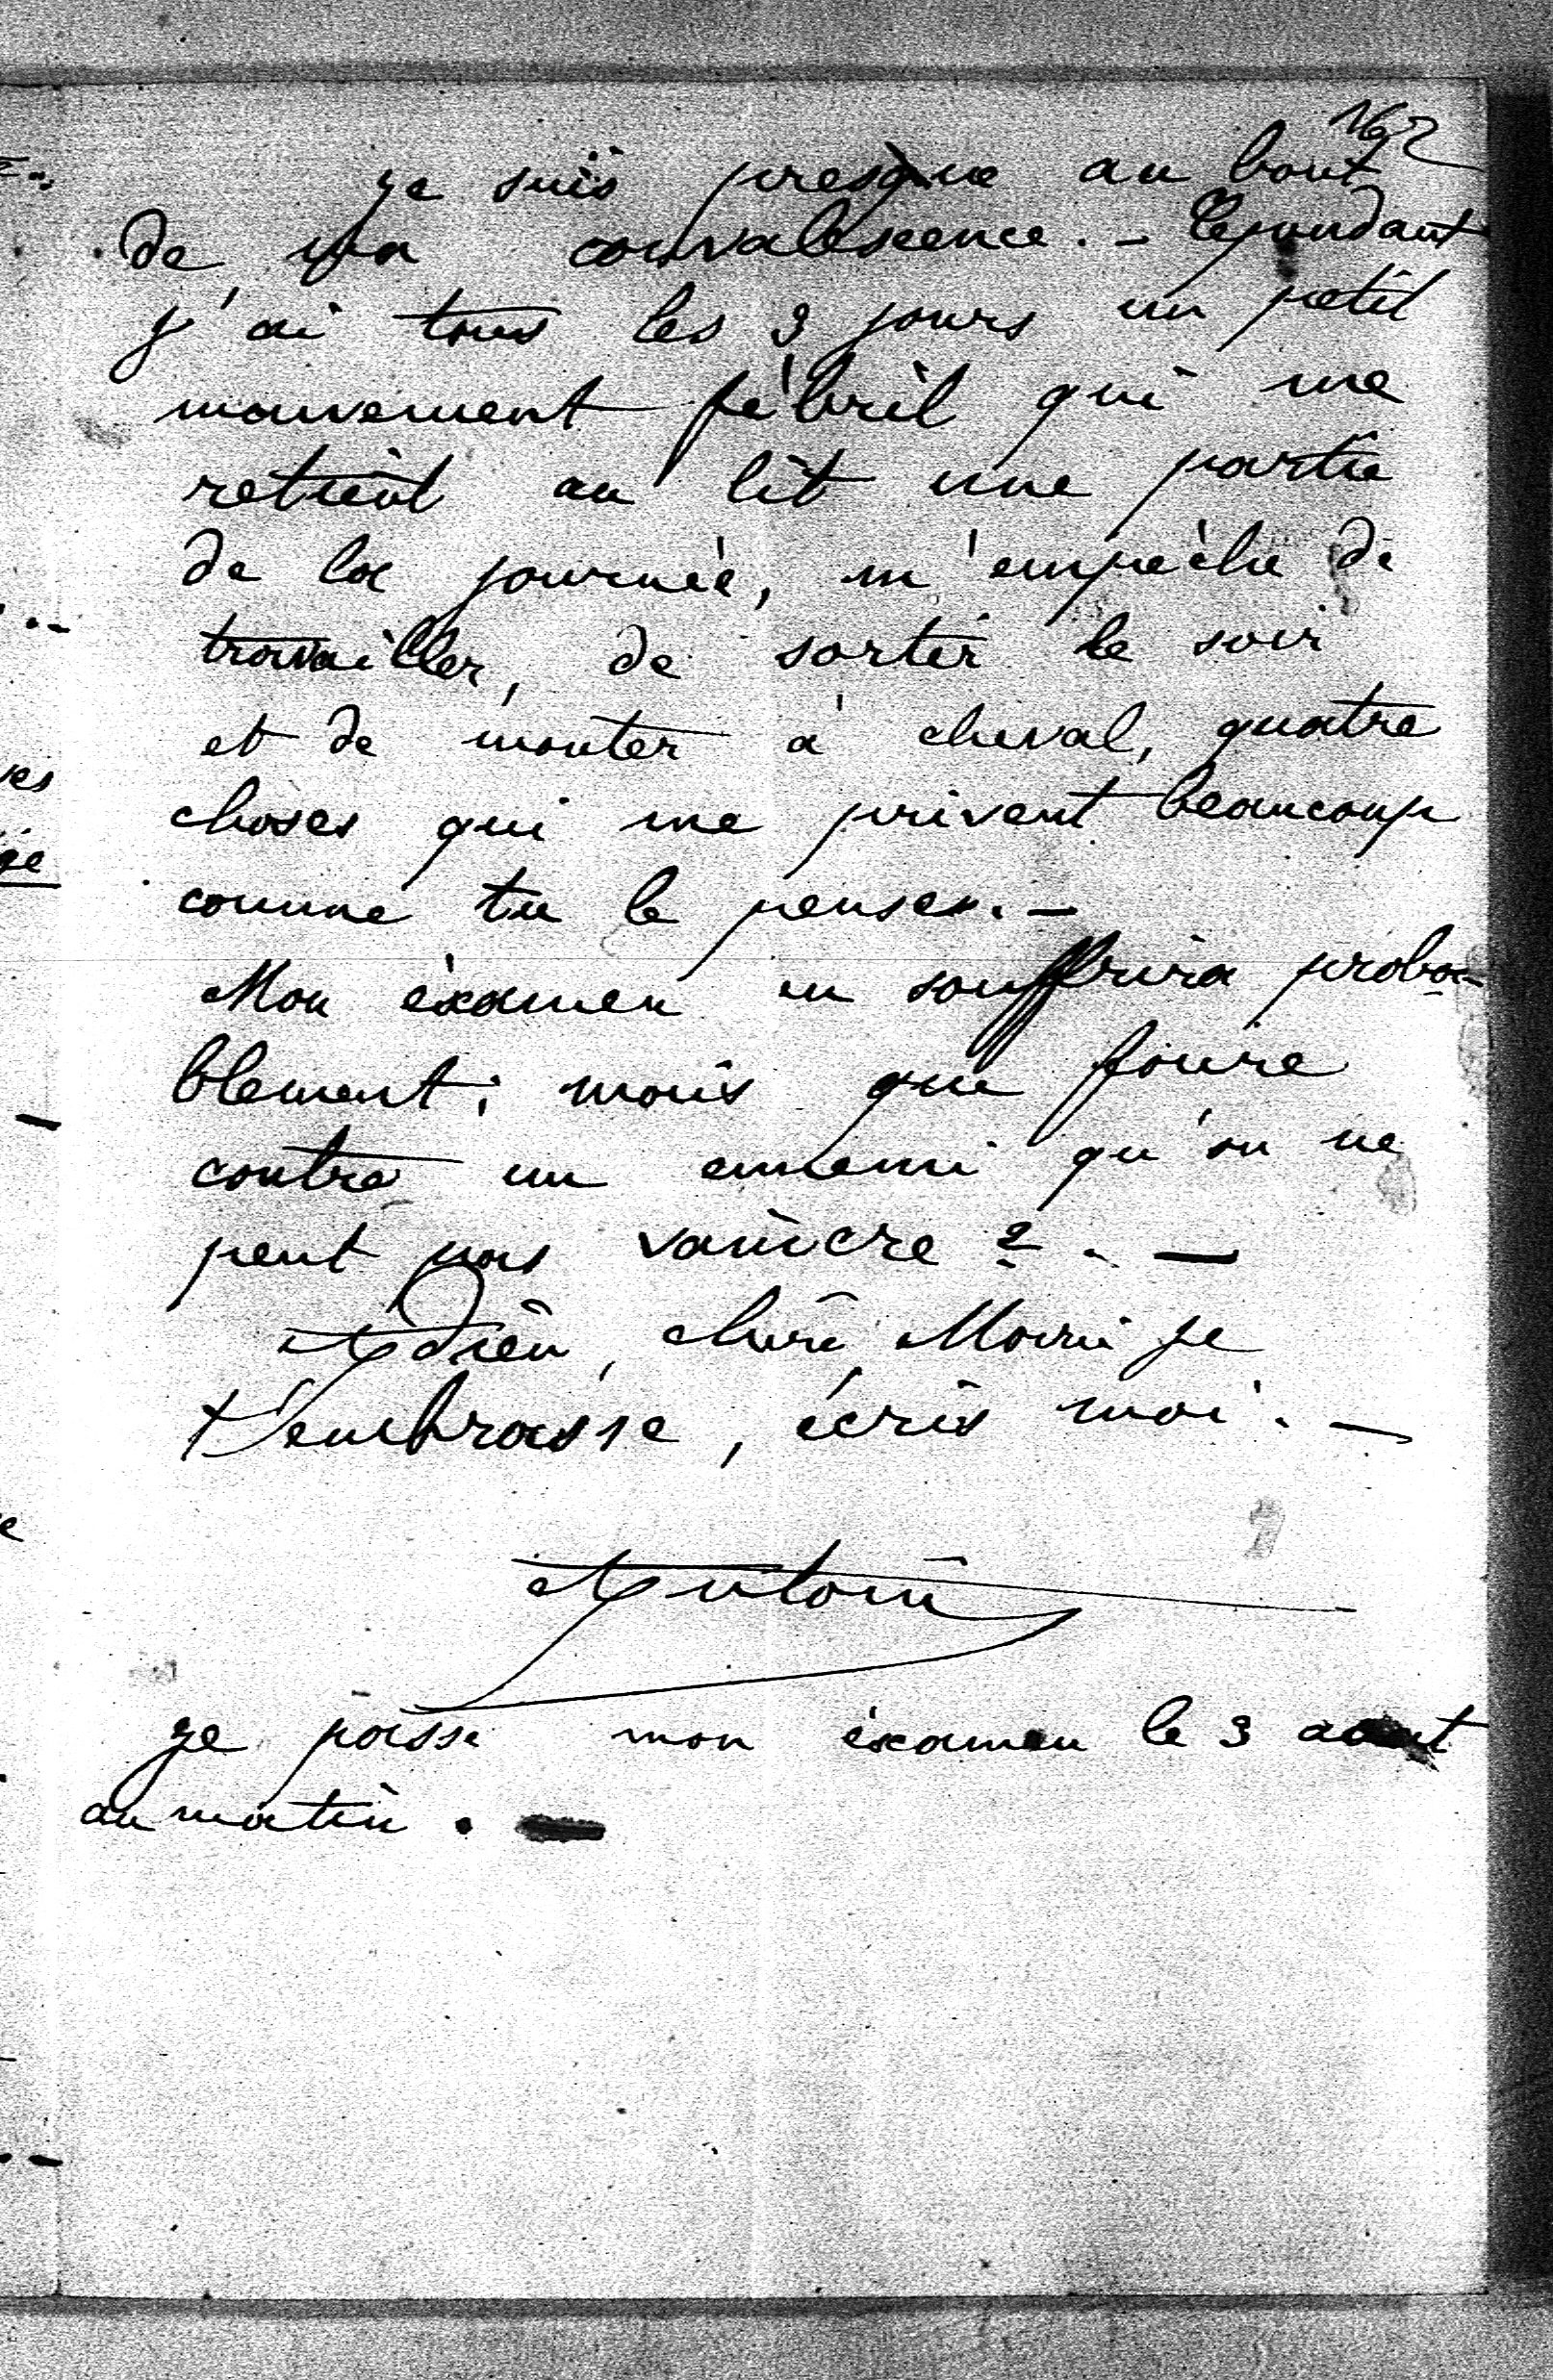 162
Je suis presque au bout
de ma convalescence. - Cependant
j'ai tous les 3 jours un petit
mouvement fébril qui me
retient au lit une partie
de la journée, m'empêche de
travailler, de sortir le soir
et de monter à cheval, quatre
choses qui me privent beaucoup
comme tu le penses. -
Mon éxamen en souffrira proba-
blement; mais que faire
contre un ennemi qu'on ne
peut pas vaincre ?. -
Adieu, chère Marie je
t'embrasse, écris moi. -
Antonin
Je passe mon éxamen le 3 aout
au matin. -